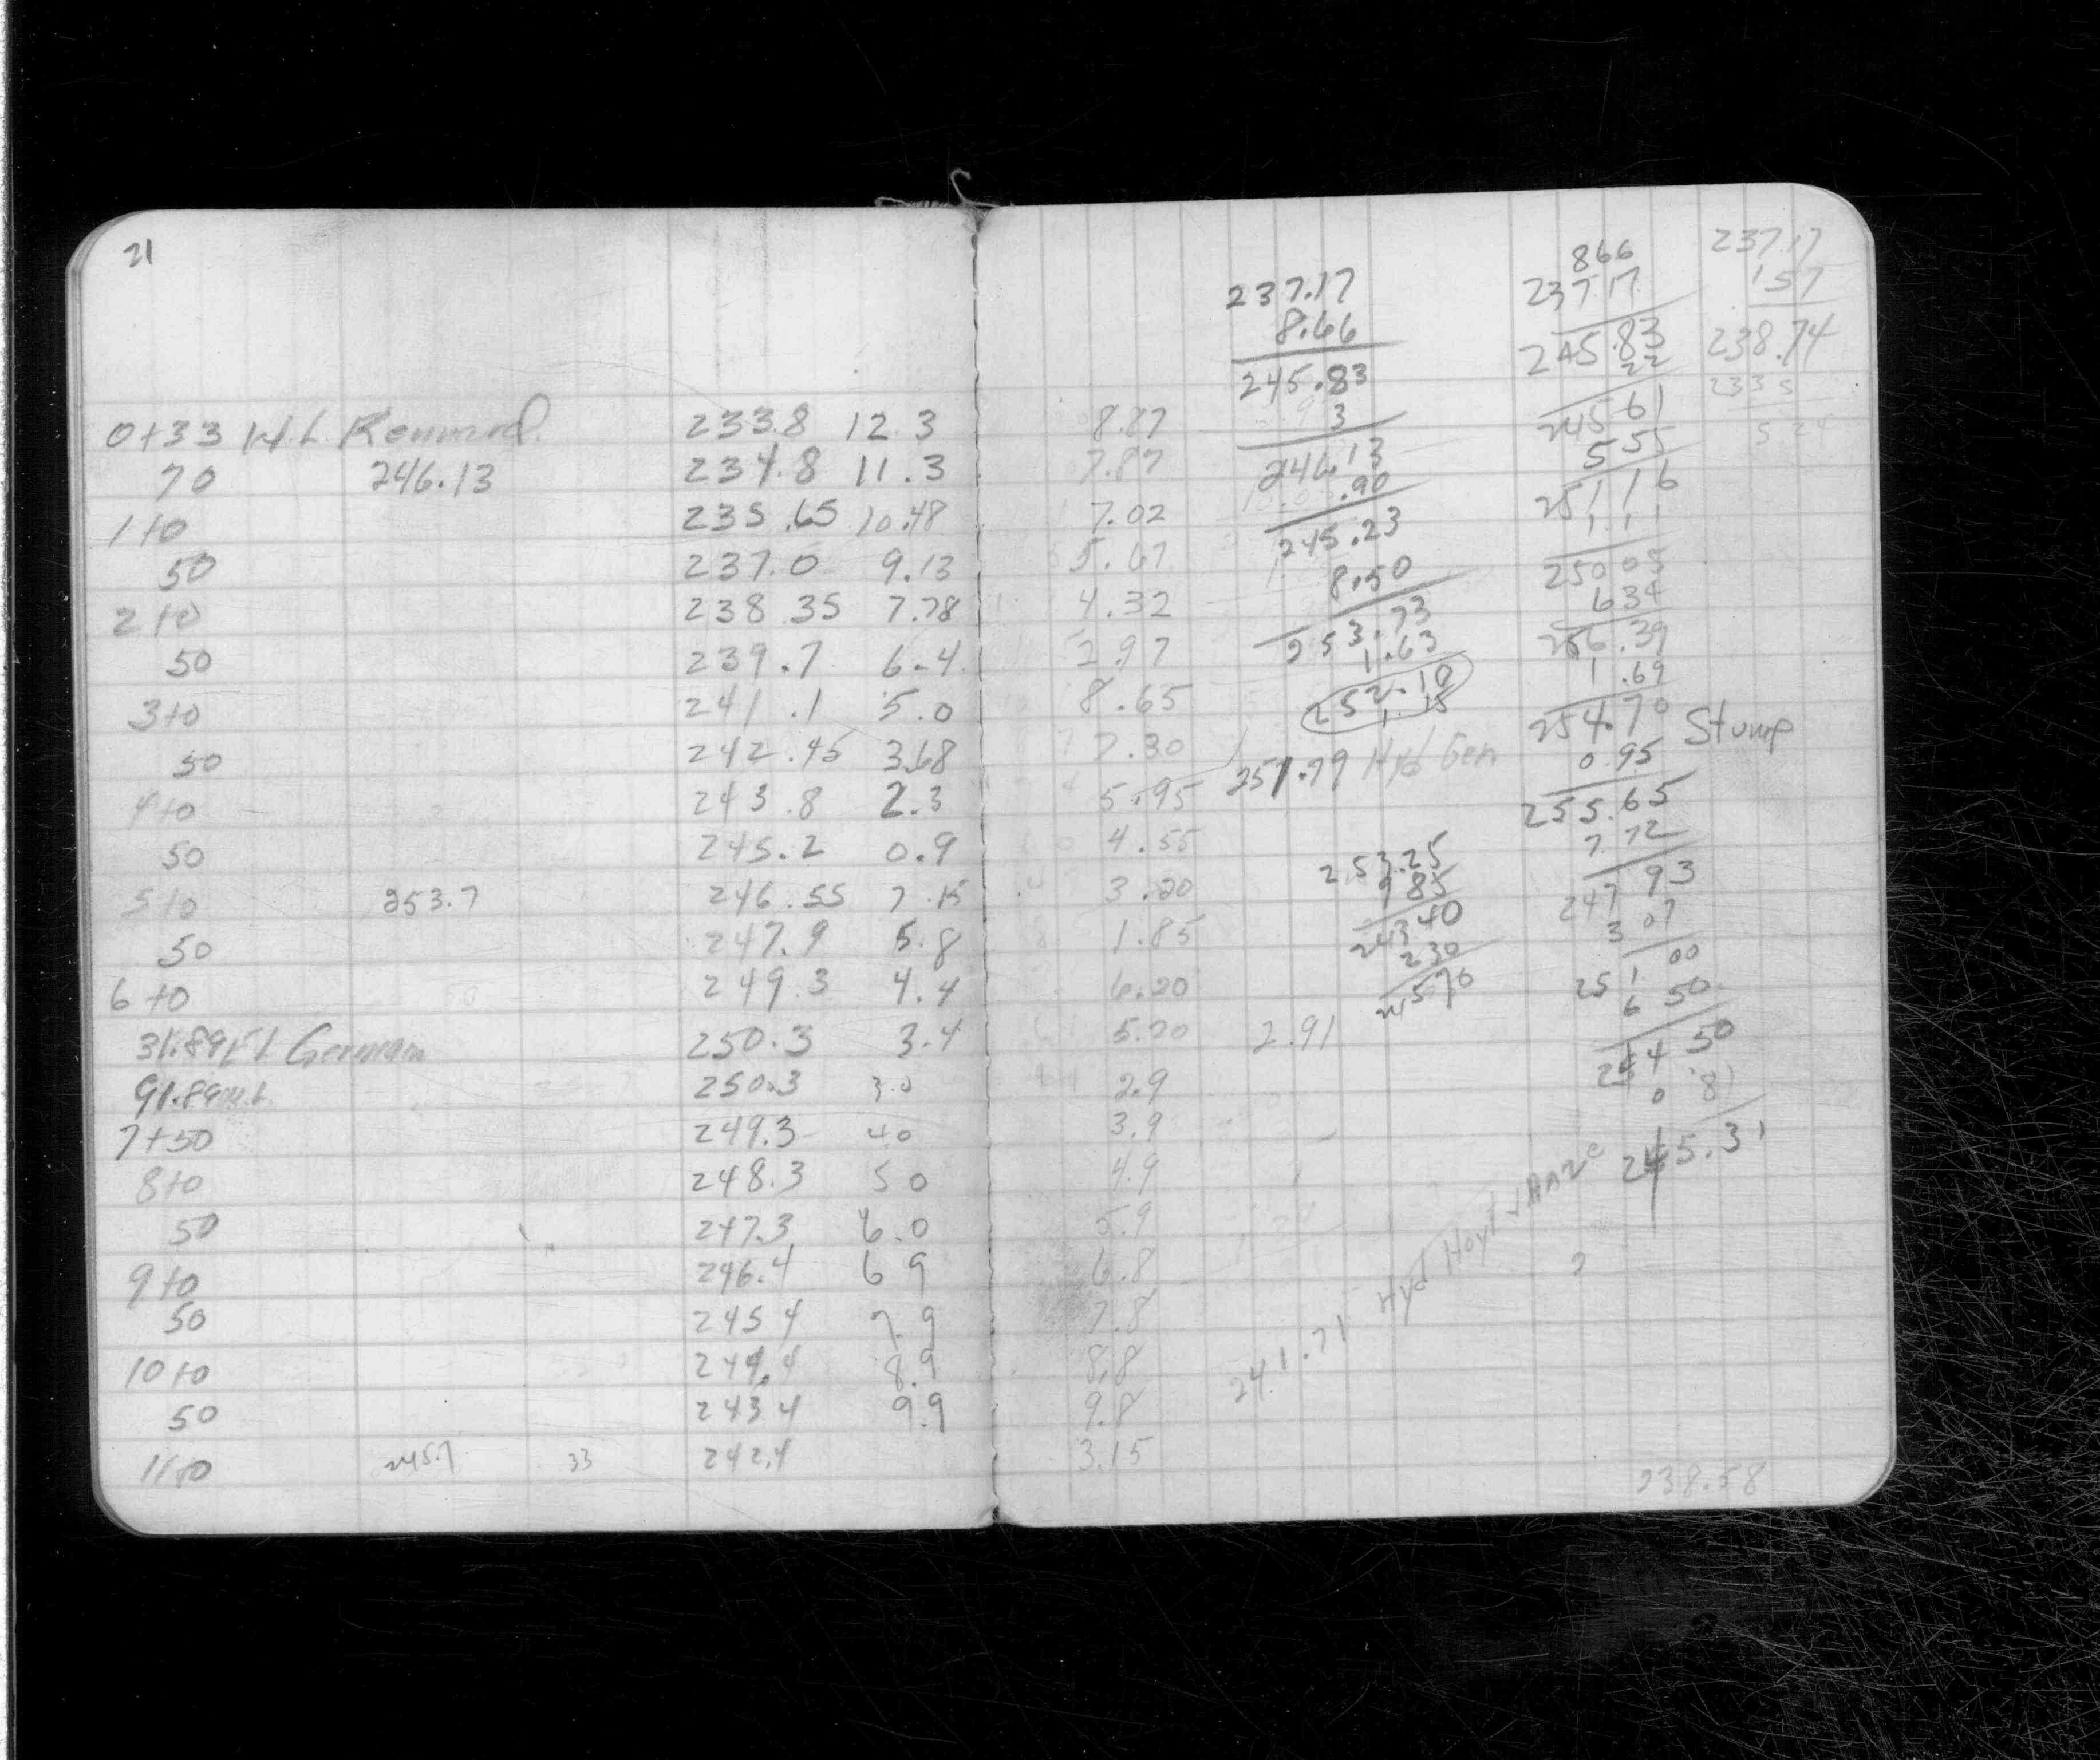 21
0+33 W.L. Kennard. 233.8 12.3
70 246.13 234.8 11.3
1+0 235.65 10.48
50 237.0 9.13
2+0 238.35 7.78
50 239.7 6.4
3+0 241.1 5.0
50 242.45 3.68
4+0 243.8 2.3
50 245.2 0.9
5+0 253.7 246.55 7.15
50 247.9 5.8
6+0 249.3 4.4
31.89 E.L. German 250.3 3.4
91.89 W.L. 250.3 3.0
7+50 249.3 4.0
8+0 248.3 5 0
50 247.3 6.0
9+0 246.4 6 9
50 245 4 7.9
10+0 244.4 8.9
50 243.4 9.9
11+0 245.7 33 242.4
8.87
7.87
7.02
5.67
4.32
2.97
8.65
7.30
5.95
4.55
3.20
1.85
6.20
5.20 2.91
2.9
3.9
4.9
5.9
6.8
7.8
8.8
9.8
3.15
237.17
8.66
245.83
3
246.13
.90
245.23
8.50
253.73
1.63
252.10
251.79 Hyd Gen
253.25
9 85
243 40
2 30
245 70
241.71 Hyd Hoyt
866
237.17
245.83
22
245 61
5 55
251 16
1.11
250 05
6 34
256.39
1.69
254.70 Stump
0.95
255.65
7 72
247 93
3 07
251 00
6 50
244 50
0 81
245.31
237.17
157
238.74
233 5
5 24
238.58